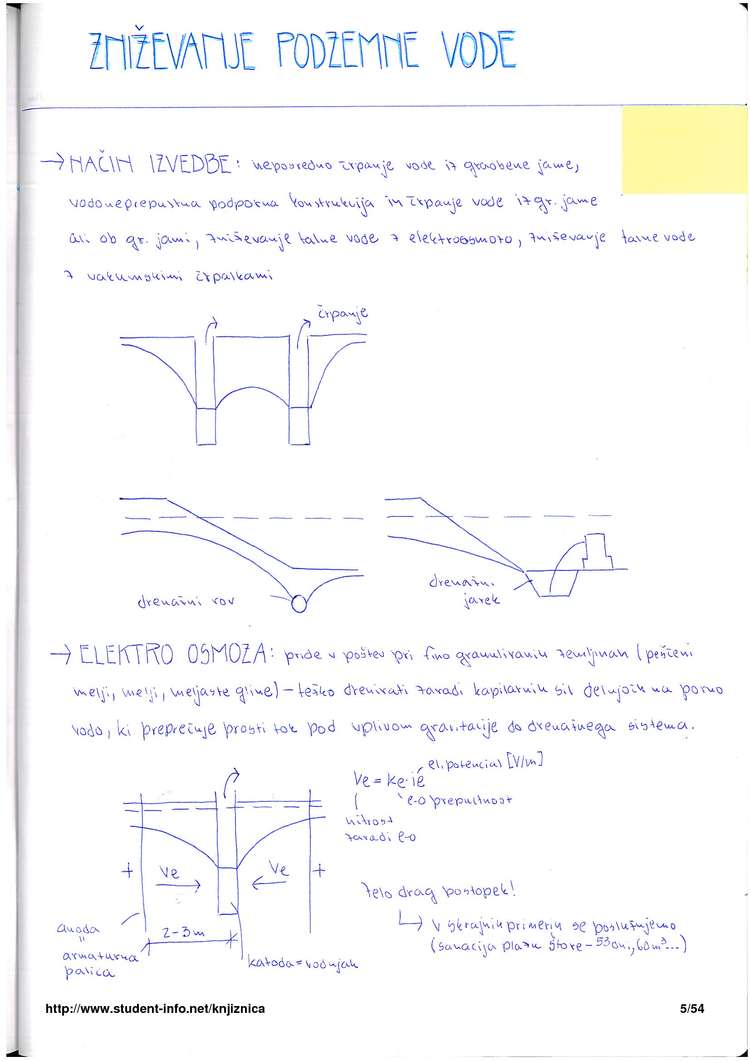 ZNIŽEVANJE PODZEMNE VODE
→ NAČIN IZVEDBE: neposredno črpanje vode iz gradbene jame,
vodoneprepustna podporna konstrukcija in črpanje vode iz gr. jame
ali ob gr. jami, zniževanje talne vode z elektroosmozo, zniževanje talne vode
z vakumskimi črpalkami
črpanje
drenažni rov
drenažni
jarek
→ ELEKTRO OSMOZA: pride v poštev pri fino granuliranih zemljinah (peščeni
melji, melji, meljaste gline) – težko drenirati zaradi kapilarnih sil delujočih na porno
vodo, ki preprečuje prosti tok pod vplivom gravitacije do drenažnega sistema.
el. potencial [V/m]
Ve = ke · ie
e-o prepustnost
hitrost
zaradi e-o
+ Ve Ve +
Zelo drag postopek!
V skrajnih primerih se poslužujemo
(sanacija plazu Štore – 60m³...)
anoda
=
armaturna
palica
2-3m
katoda = vodnjak
http://www.student-info.net/knjiznica 5/54